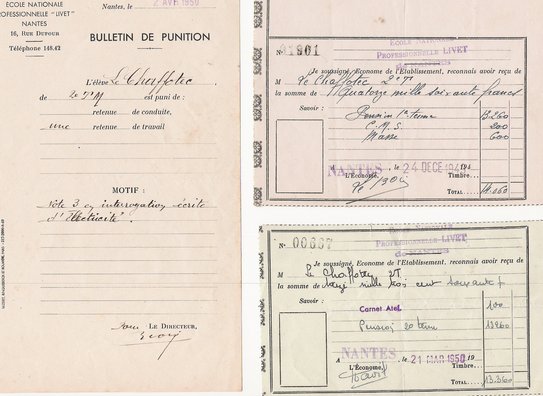 ÉCOLE NATIONALE
PROFESSIONNELLE "LIVET"
NANTES
16, RUE DUFOUR
Téléphone 148.42
Nantes, le 2 AVR 1950
BULLETIN DE PUNITION
L'élève Le Chaffotec
de 2e T M est puni de :
retenue de conduite,
une retenue de travail
MOTIF :
Note 3 en interrogation écrite
d'Electricité.
LE DIRECTEUR,
N° 01901
ÉCOLE NATIONALE
PROFESSIONNELLE LIVET
de NANTES
Je soussigné, Econome de l'Etablissement, reconnais avoir reçu de
M Le Chaffotec 2e T
la somme de Quatorze mille soixante francs
Savoir :
Pension 1e terme 13.260
C.M.S. 200
Masse 600
NANTES, le 24 DECE 194
L'Économe, Timbre...
TOTAL 14.060
N° 00667
ÉCOLE NATIONALE
PROFESSIONNELLE LIVET
de NANTES
Je soussigné, Econome de l'Etablissement, reconnais avoir reçu de
M Le Chaffotec 2T
la somme de treize mille trois cent soixante f
Savoir :
Carnet Atel. 100
Pension 2e terme 13260
A NANTES, le 21 MAR 1950 19
L'Économe, Timbre...
TOTAL 13.360